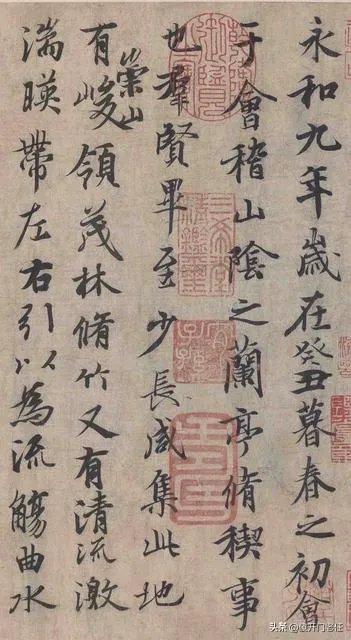 永和九年歲在癸丑暮春之初會
于會稽山陰之蘭亭脩稧事
也羣賢畢至少長咸集此地
有崇山峻領茂林脩竹又有清流激
湍暎帶左右引以為流觴曲水
三希堂精鑑璽
宜子孫
头条